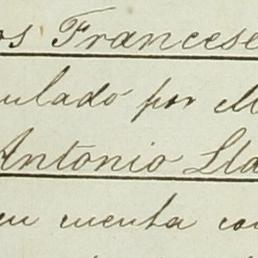 os Francese
ulado por M
Antonio Lla
en cuenta co